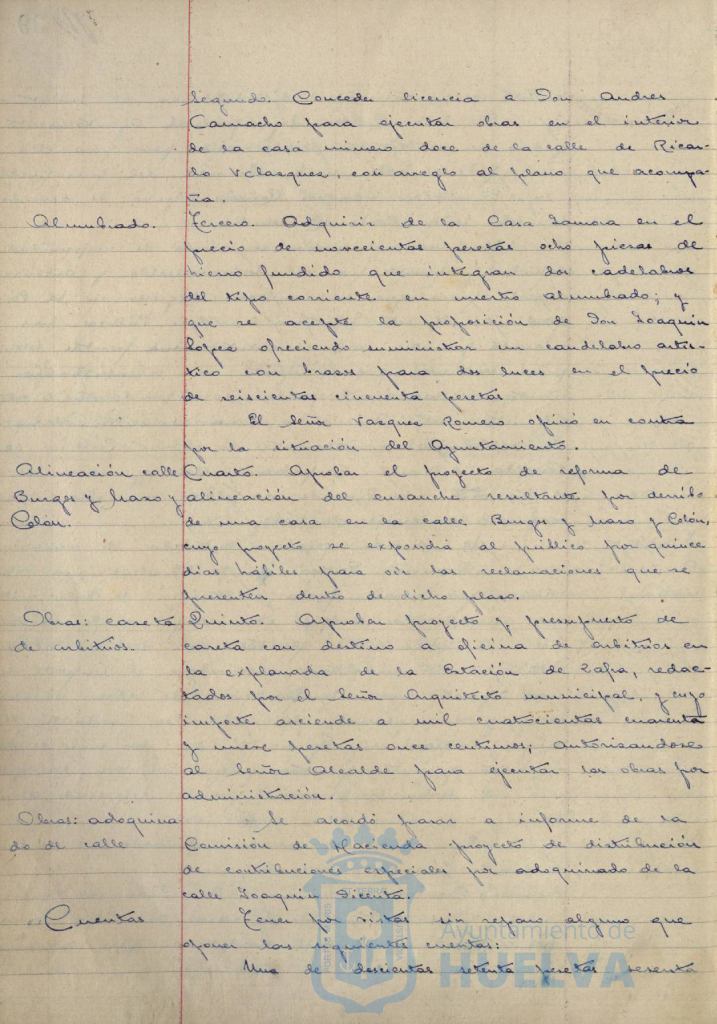 Segundo. Conceder licencia a Don Andres
Camacho para ejecutar obras en el interior
de la casa número doce de la calle de Ricar-
do Velazquez, con arreglo al plano que acompa-
ña.
Alumbrado.
Tercero. Adquirir de la Casa Zamora en el
precio de novecientas pesetas ocho piezas de
hierro fundido que integran dos cadelabros
del tipo corriente en nuestro alumbrado; y
que se acepte la proposición de Don Joaquin
Lopez ofreciendo suministrar un candelabro artis-
tico con brazos para dos luces en el precio
de seiscientas cincuenta pesetas
El Señor Vazquez Romero opinó en contra
por la situación del Ayuntamiento.
Alineación calle
Burgos y Mazo y
Colón.
Cuarto. Aprobar el proyecto de reforma de
alineación del ensanche resultante por derribo
de una casa en la calle Burgos y Mazo y Colón,
cuyo proyecto se expondrá al público por quince
dias hábiles para oir las reclamaciones que se
presenten dentro de dicho plazo.
Obras: caseta
de arbitrios.
Quinto. Aprobar proyecto y presupuesto de
caseta con destino a oficina de arbitrios en
la explanada de la Estación de Zafra, redac-
tados por el Señor Arquitecto municipal, y cuyo
importe asciende a mil cuatrocientas cuarenta
y nueve pesetas once centimos; autorizandose
al Señor Alcalde para ejecutar las obras por
administración.
Obras: adoquina-
do de calle
Se acordó pasar a informe de la
Comisión de Hacienda proyecto de distribución
de contribuciones especiales por adoquinado de la
calle Joaquin Dicenta.
Cuentas
Tener por vistas sin reparo alguno que
oponer las siguientes cuentas:
Una de doscientas setenta pesetas sesenta
Ayuntamiento de
HUELVA